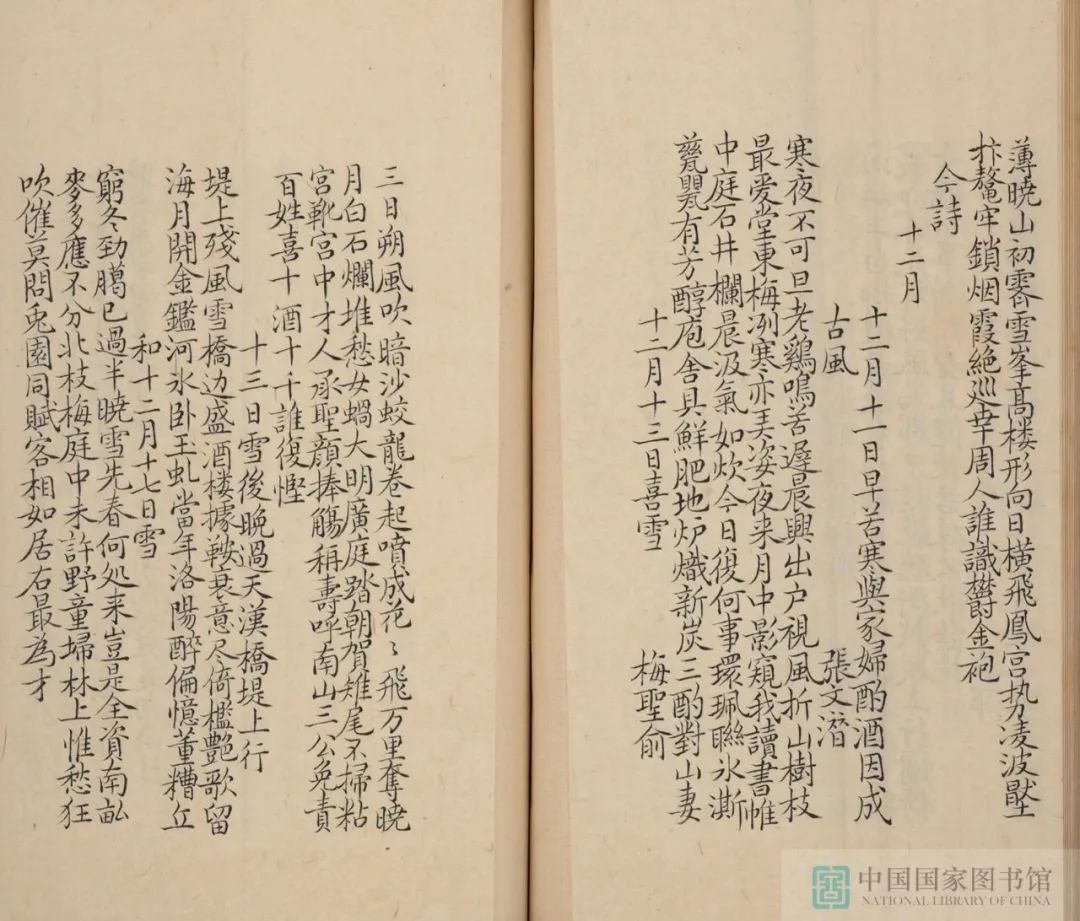 薄曉山初霽雪峯高楼形向日横飛鳳宫势凌波壓
抃鼇牢鎖烟霞絶巡幸周人誰識欝金袍
今詩
十二月
十二月十一日早苦寒與家婦酌酒因成
古風 張文潛
寒夜不可旦老鷄鳴苦遲晨興出户視風折山樹枝
最爱堂東梅冽寒亦美姿夜来月中影窺我讀書帷
中庭石井欄晨汲氣如炊今日復何事環珮聮氷澌
甕甖有芳醇庖舎具鮮肥地炉熾新炭三酌對山妻
十二月十三日喜雪 梅聖俞
三日朔風吹暗沙蛟龍卷起噴成花〻飛万里奪曉
月白石爛堆愁女蝸大明廣庭踏朝賀雉尾不掃粘
宫靴宫中才人承聖顔捧觴称壽呼南山三公免責
百姓喜十酒十千誰復慳
十三日雪後晚過天漢橋堤上行
堤上殘風雪橋边盛酒楼據鞍衰意尽倚檻艶歌留
海月開金鑑河氷卧玉虬當年洛陽醉偏憶董糟丘
和十二月十七日雪
窮冬勁臈已過半曉雪先春何処来豈是全資南畝
麥多應不分北枝梅庭中未許野童埽林上惟愁狂
吹催莫問兎園同賦客相如居右最為才
中国国家图书馆
NATIONAL LIBRARY OF CHINA